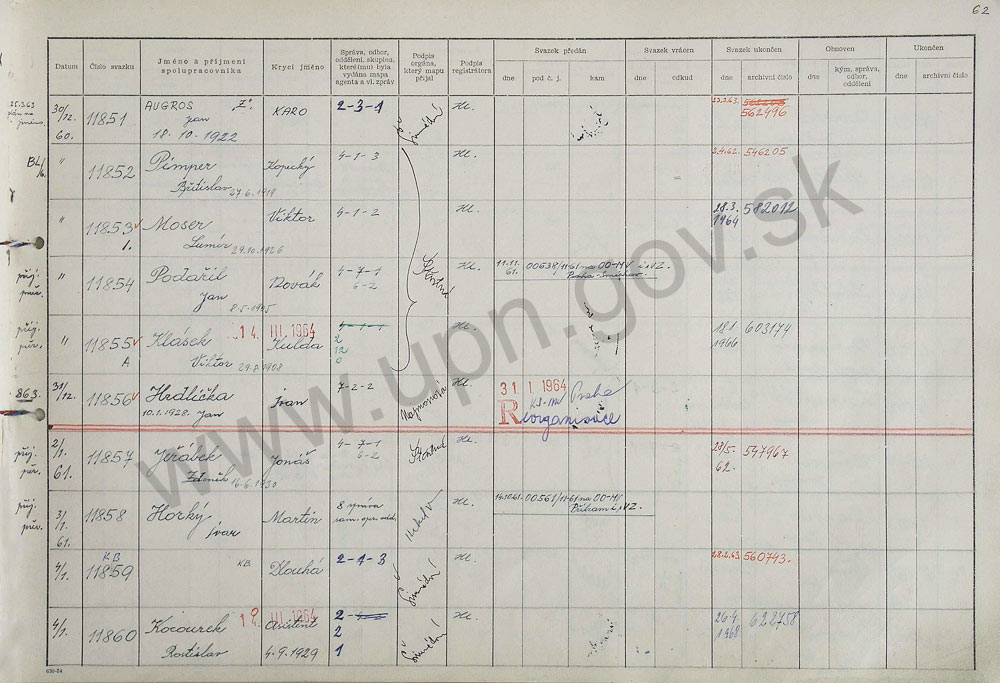 62
Datum
Číslo svazku
Jméno a příjmení
spolupracovníka
Krycí jméno
Správa, odbor,
oddělení, skupina,
které(mu) byla
vydána mapa
agenta a vl. zpráv
Podpis
orgána,
který mapu
přijal
Podpis
registrátora
Svazek předán
dne
pod č. j.
kam
Svazek vrácen
dne
odkud
Svazek ukončen
dne
archivní číslo
Obnoven
dne
kým, správa,
odbor,
oddělení
Ukončen
dne
archivní číslo
25.3.63
30/12.
60.
11851
AUGROS
Jan
18.10.1922
KARO
2-3-1
Hl.
25.3.63.
562496
"
11852
Pimper
Břetislav 27.6.1918
Kopecký
4-1-3
Hl.
2.4.62. 546205
"
11853
1.
Moser
Lumír 29.10.1926
Viktor
4-1-2
Hl.
28.3. 582012
1964
příj.
"
11854
Podařil
Jan
8.5.1905
Novák
4-7-1
6-2
Šťastná
Hl.
11.11.
61.
00638/11-61 na OO-MV
Praha-Smíchov
příj.
"
11855
A
Klásek
Viktor 29.8.1908
14. III. 1964
Kulda
2
12
0
Hl.
181 603174
1966
863.
31/12.
11856
Hrdlička
10.1.1928. Jan
Ivan
7-2-2
Hl.
31 1 1964
Praha
Reorganisace
příj.
2/1.
61.
11857
Jeřábek
Zdeněk 16.6.1930
Jonáš
4-7-1
6-2
Hl.
28/5. 547967
62.
příj.
3/1.
61.
11858
Horký
Ivar
Martin
8 správa
sam. oper. odd.
Hl.
14.10.61.
00561/11-61 na OO-MV
Příbram
4/1.
KB
11859
KB.
Dlouhá
2-4-3
Hl.
28.2.63. 560743.
4/1.
11860
Kocourek
Rostislav
III. 1964
Asistent
4.9.1929
2
2
1
Hl.
26.4
1968
622758
630-54
www.upn.gov.sk